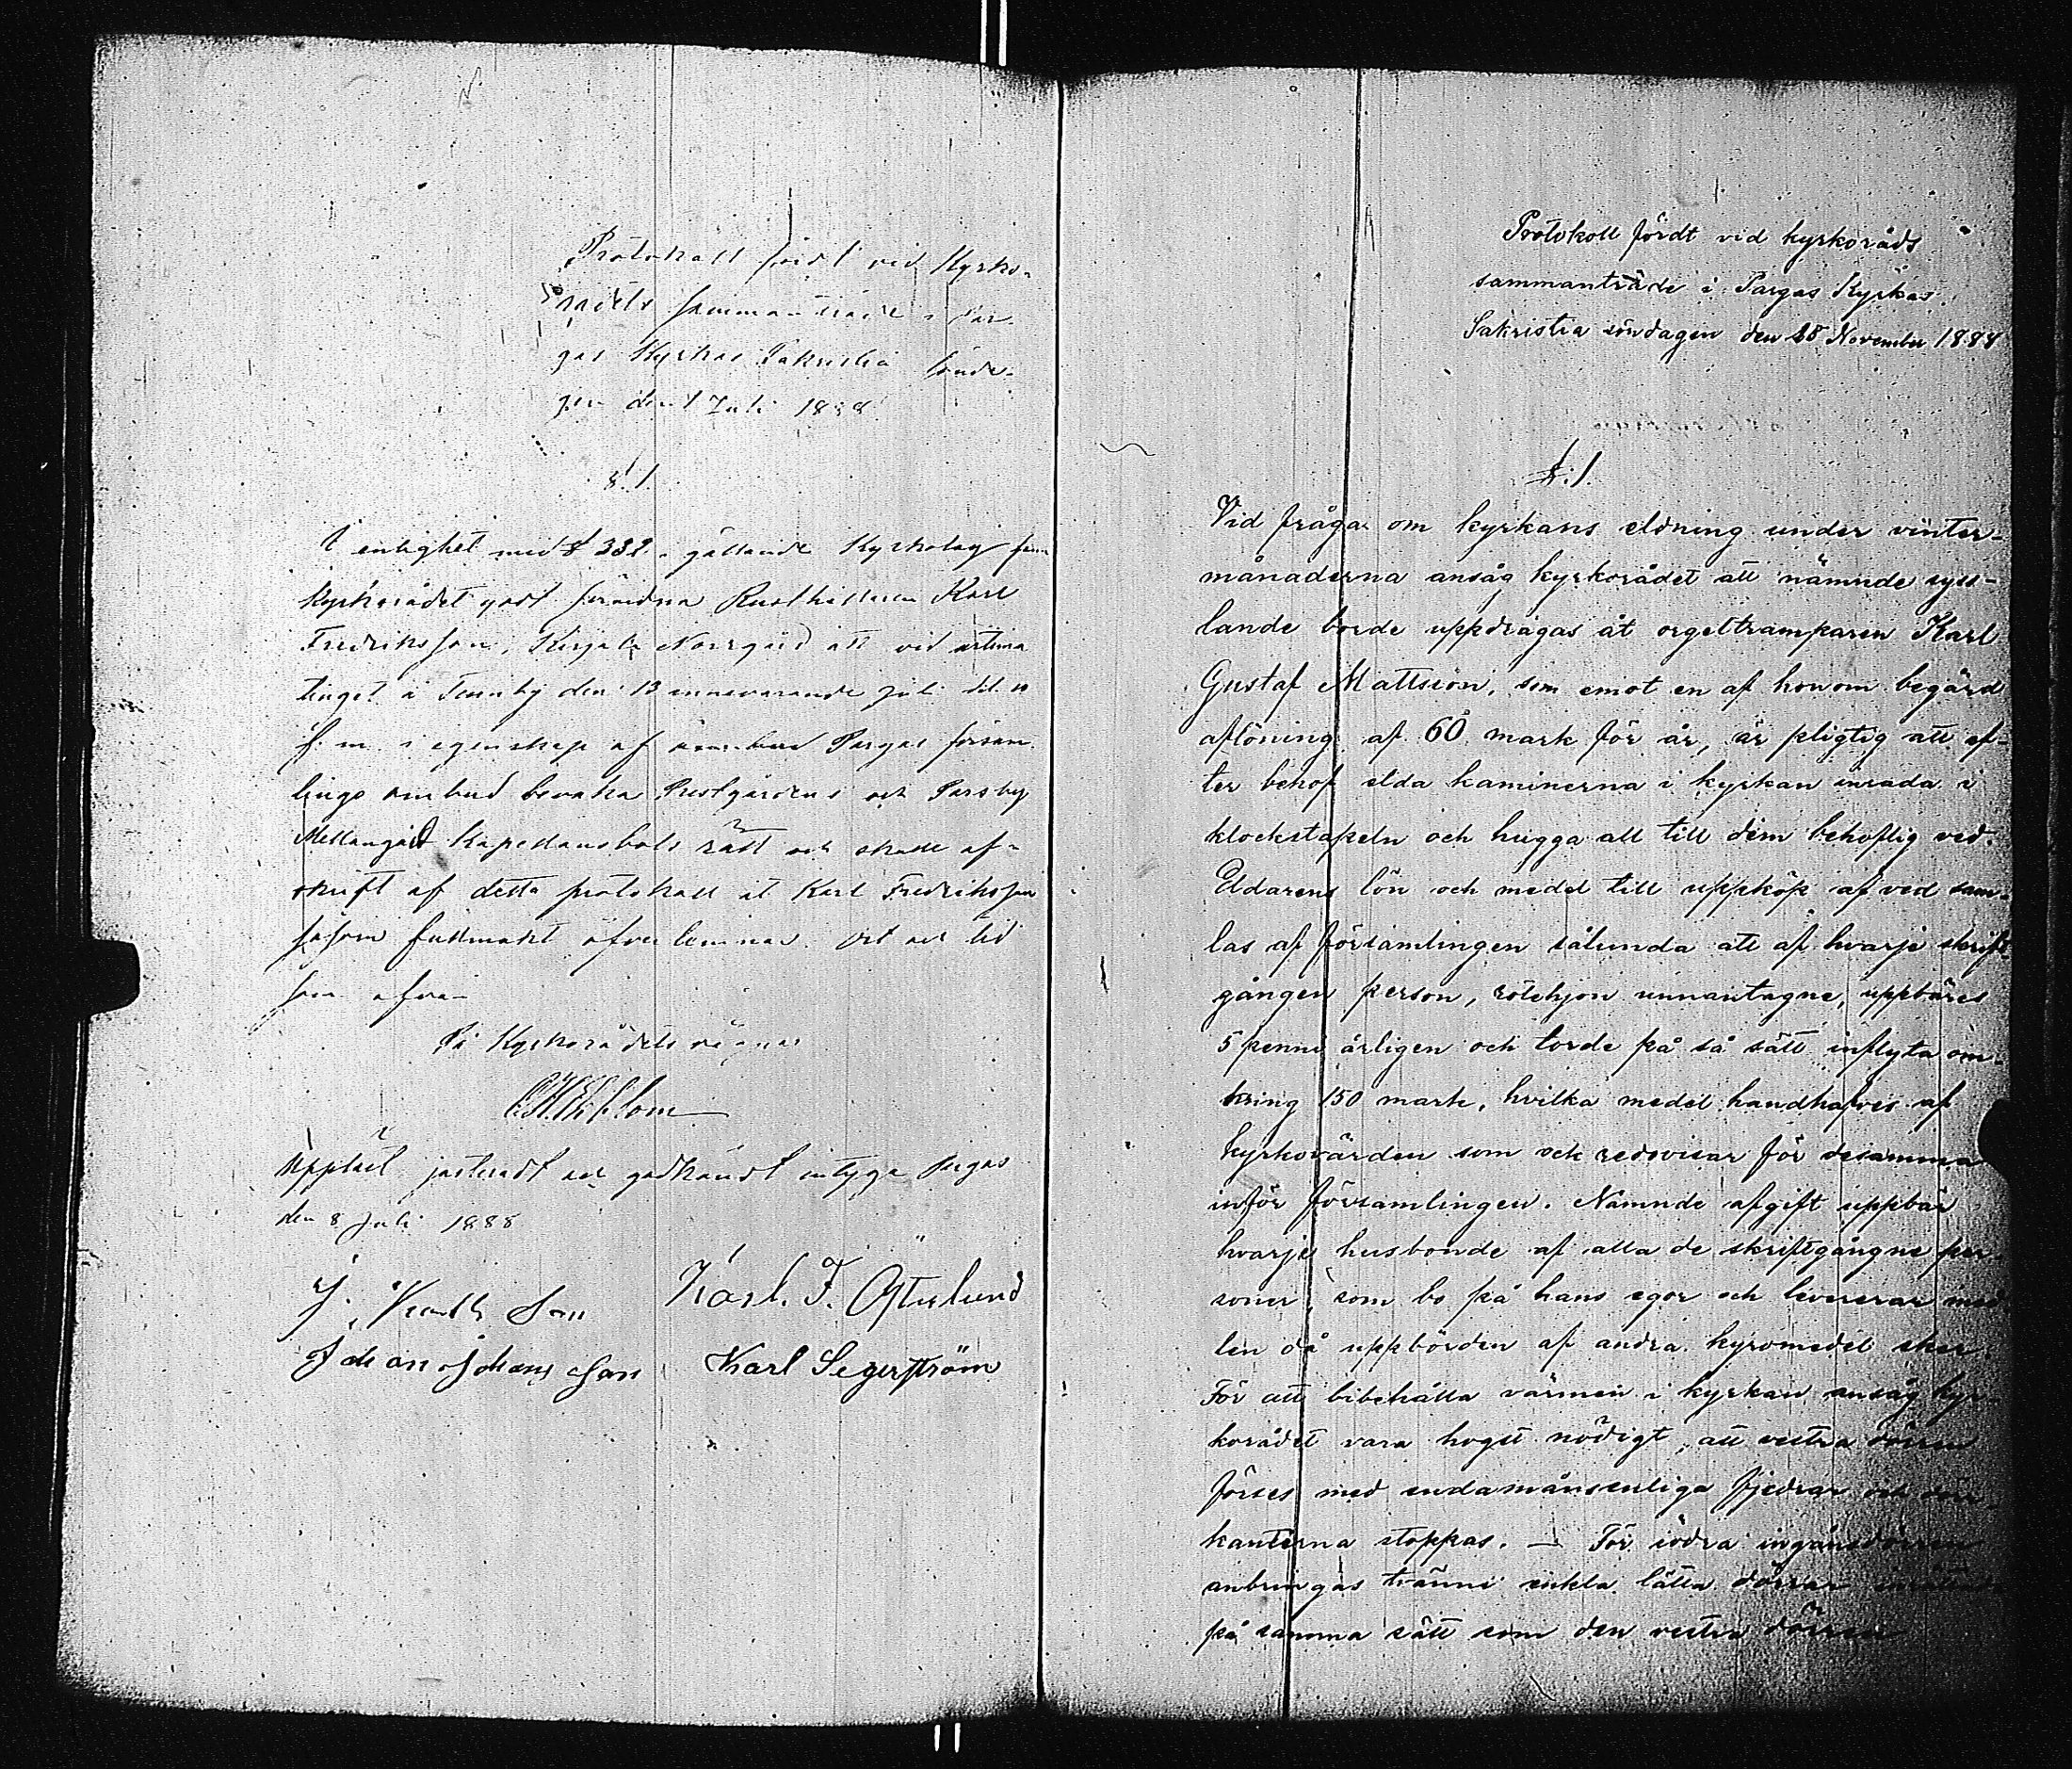 Protokoll fördt vid Kyrko-
rådets sammanträde i Par-
gas Kyrkas Sakristia sönda-
gen den 1 Juli 1888
§.1.
I enlighet med § 332 gällande Kyrkolag fann
Kyrkorådet godt förordna Rusthållaren Karl
Fredriksson, Kirjala Norrgård att vid
tinget i Tennby den 13 innevarande Juli kl. 10
f. m. i egenskap af Pargas försam
lings ombud bevaka Prestgårdens och Parsby
Mellangård Kapellansbols rätt och skall af-
skrift af detta protokoll åt Karl Fredriksson
såsom fullmakt öfverlemnas. Ort och tid
som ofvan
På Kyrkorådets vägnar
Uppläst justeradt och godkändt intyga Pargas
den 8 Juli 1888
J. Karl F. Österlund
Johan Johansson Karl Segerström
Protokoll fördt vid kyrkoråds
sammanträde i Pargas Kyrkas
Sakristia söndagen den 25 November 1888
§.1.
Vid frågan om kyrkans eldning under vinter-
månaderna ansåg kyrkorådet att nämnde syss-
lande borde uppdragas åt orgeltramparen Karl
Gustaf Mattsson, som emot en af honom begärd
aflöning af 60 mark för år, är pligtig att ef-
ter behof elda kaminerna i kyrkan inlada i
klockstapeln och hugga all till dem behöflig ved.
Eldarens lön och medel till uppköp af ved sam-
las af församlingen sålunda att af hvarje skrift-
gången person, rotehjon unnantagne, uppbäres
5 penni årligen och torde på så sätt inflyta om-
kring 150 mark, hvilka medel handhafves af
kyrkovärden som ock redovisar för desamma
inför församlingen. Nämnde afgift uppbär
hvarje husbonde af alla de skriftgångne per
soner, som bo på hans egor och levererar med
len då uppbörden af andra kyromedel sker.
För att bibehålla värmen i kyrkan ansåg kyr-
korådet vara högst nödigt, att vestra dörren
förses med endamånsenliga fjedrar och dörr-
kanterna stoppas. — För södra ingånsdörren
anbringas tvänne enkla lätta dörrar
på samma sätt som den vestra dörren